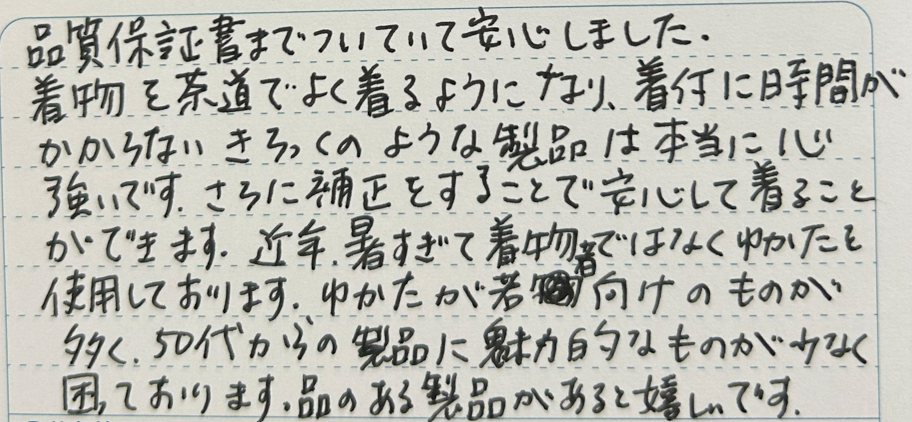 品質保証書までついていて安心しました.
着物を茶道でよく着るようになり、着付に時間が
かからない きらっくの ような製品は本当に心
強いです. さらに補正をすることで安心して着ること
ができます. 近年、暑すぎて着物ではなくゆかたを
使用しております. ゆかたが若者向けのものが
多く、50代からの製品に魅力的なものが少なく
困っております、品のある製品があると嬉しいです.